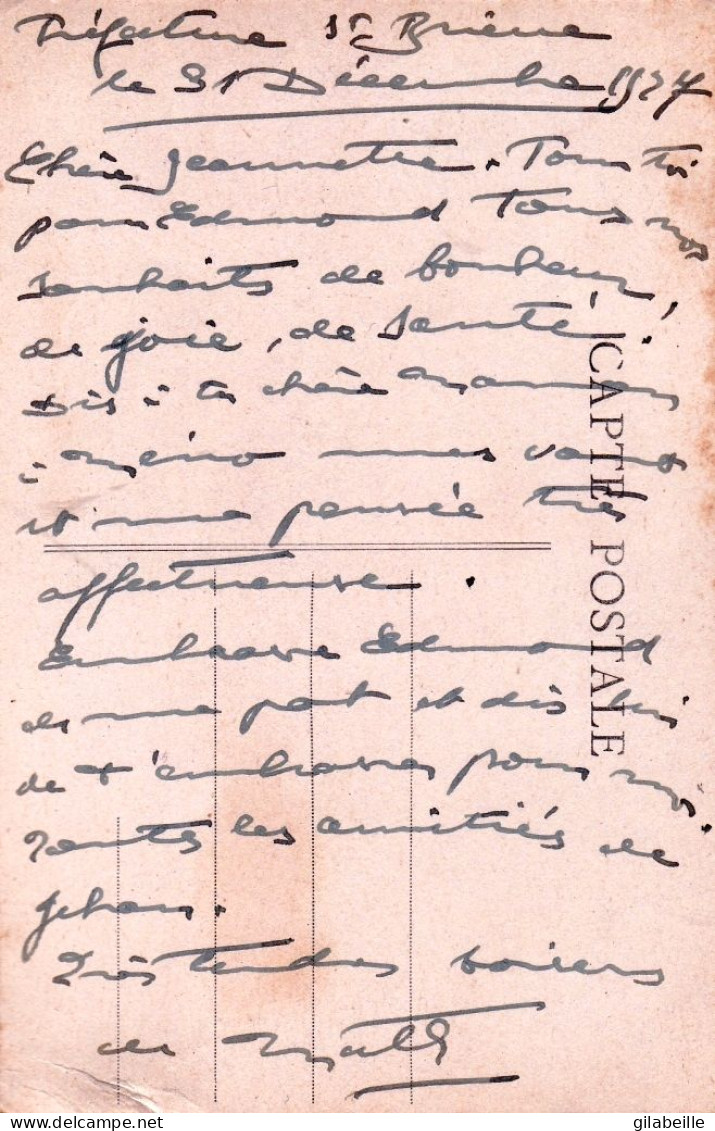 Préfecture St Brieuc
le 31 Décembre 1927
Chère Jeannette. Pour toi
pour Edmond tous nos
souhaits de bonheur,
de joie, de santé.
Dis à ta chère maman
à mes vœux
et une pensée très
affectueuse.
Embrasse Edmond
de ma part et dis lui
de t'embrasser pour moi.
Toutes les amitiés de
Jehan.
Très tendres baisers
de
CARTE POSTALE
gilabeille